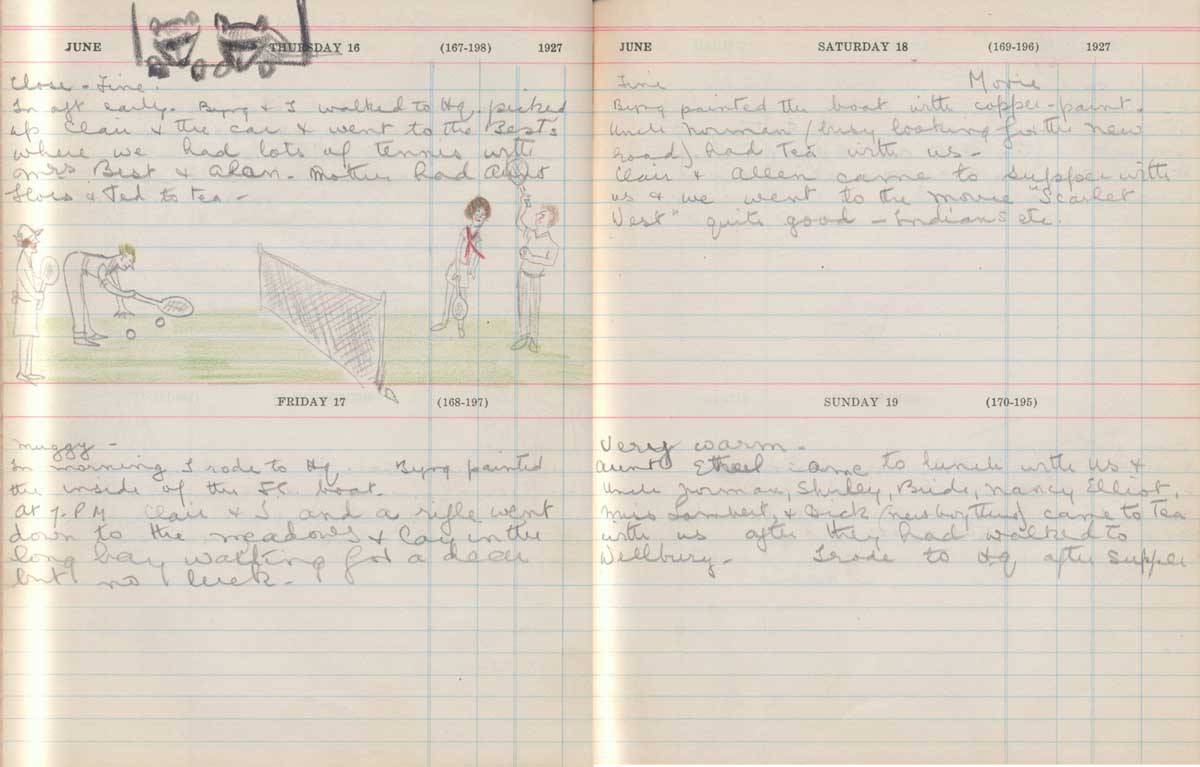 JUNE THURSDAY 16 (167-198) 1927
Close - Fine.
In aft early. Byng & I walked to Hq. picked
up Clair & the car & went to the Bests
where we had lots of tennis with
Mrs Best & Alan. Mother had Aunt
& Ted to tea -
FRIDAY 17 (168-197)
Muggy -
In morning I rode to Hq. Byng painted
the inside of the boat.
At 7. P.M Clair & I and a rifle went
down to the meadows & lay in the
long hay waiting for a deer
but no luck -
JUNE SATURDAY 18 (169-196) 1927
Fine Movie
Byng painted the boat with copper-paint.
Uncle Norman (busy looking for the new
road) had Tea with us -
Clair & Allen came to supper with
us & we went to the movie "Scarlet
West" quite good - Indians etc.
SUNDAY 19 (170-195)
Very warm -
Aunt Ethel came to lunch with us &
Uncle Norman, Shirley, Bride, Nancy Elliot,
Miss Lambert, & Dick came to Tea
with us after they had walked to
Wellbury - I rode to Hq after supper